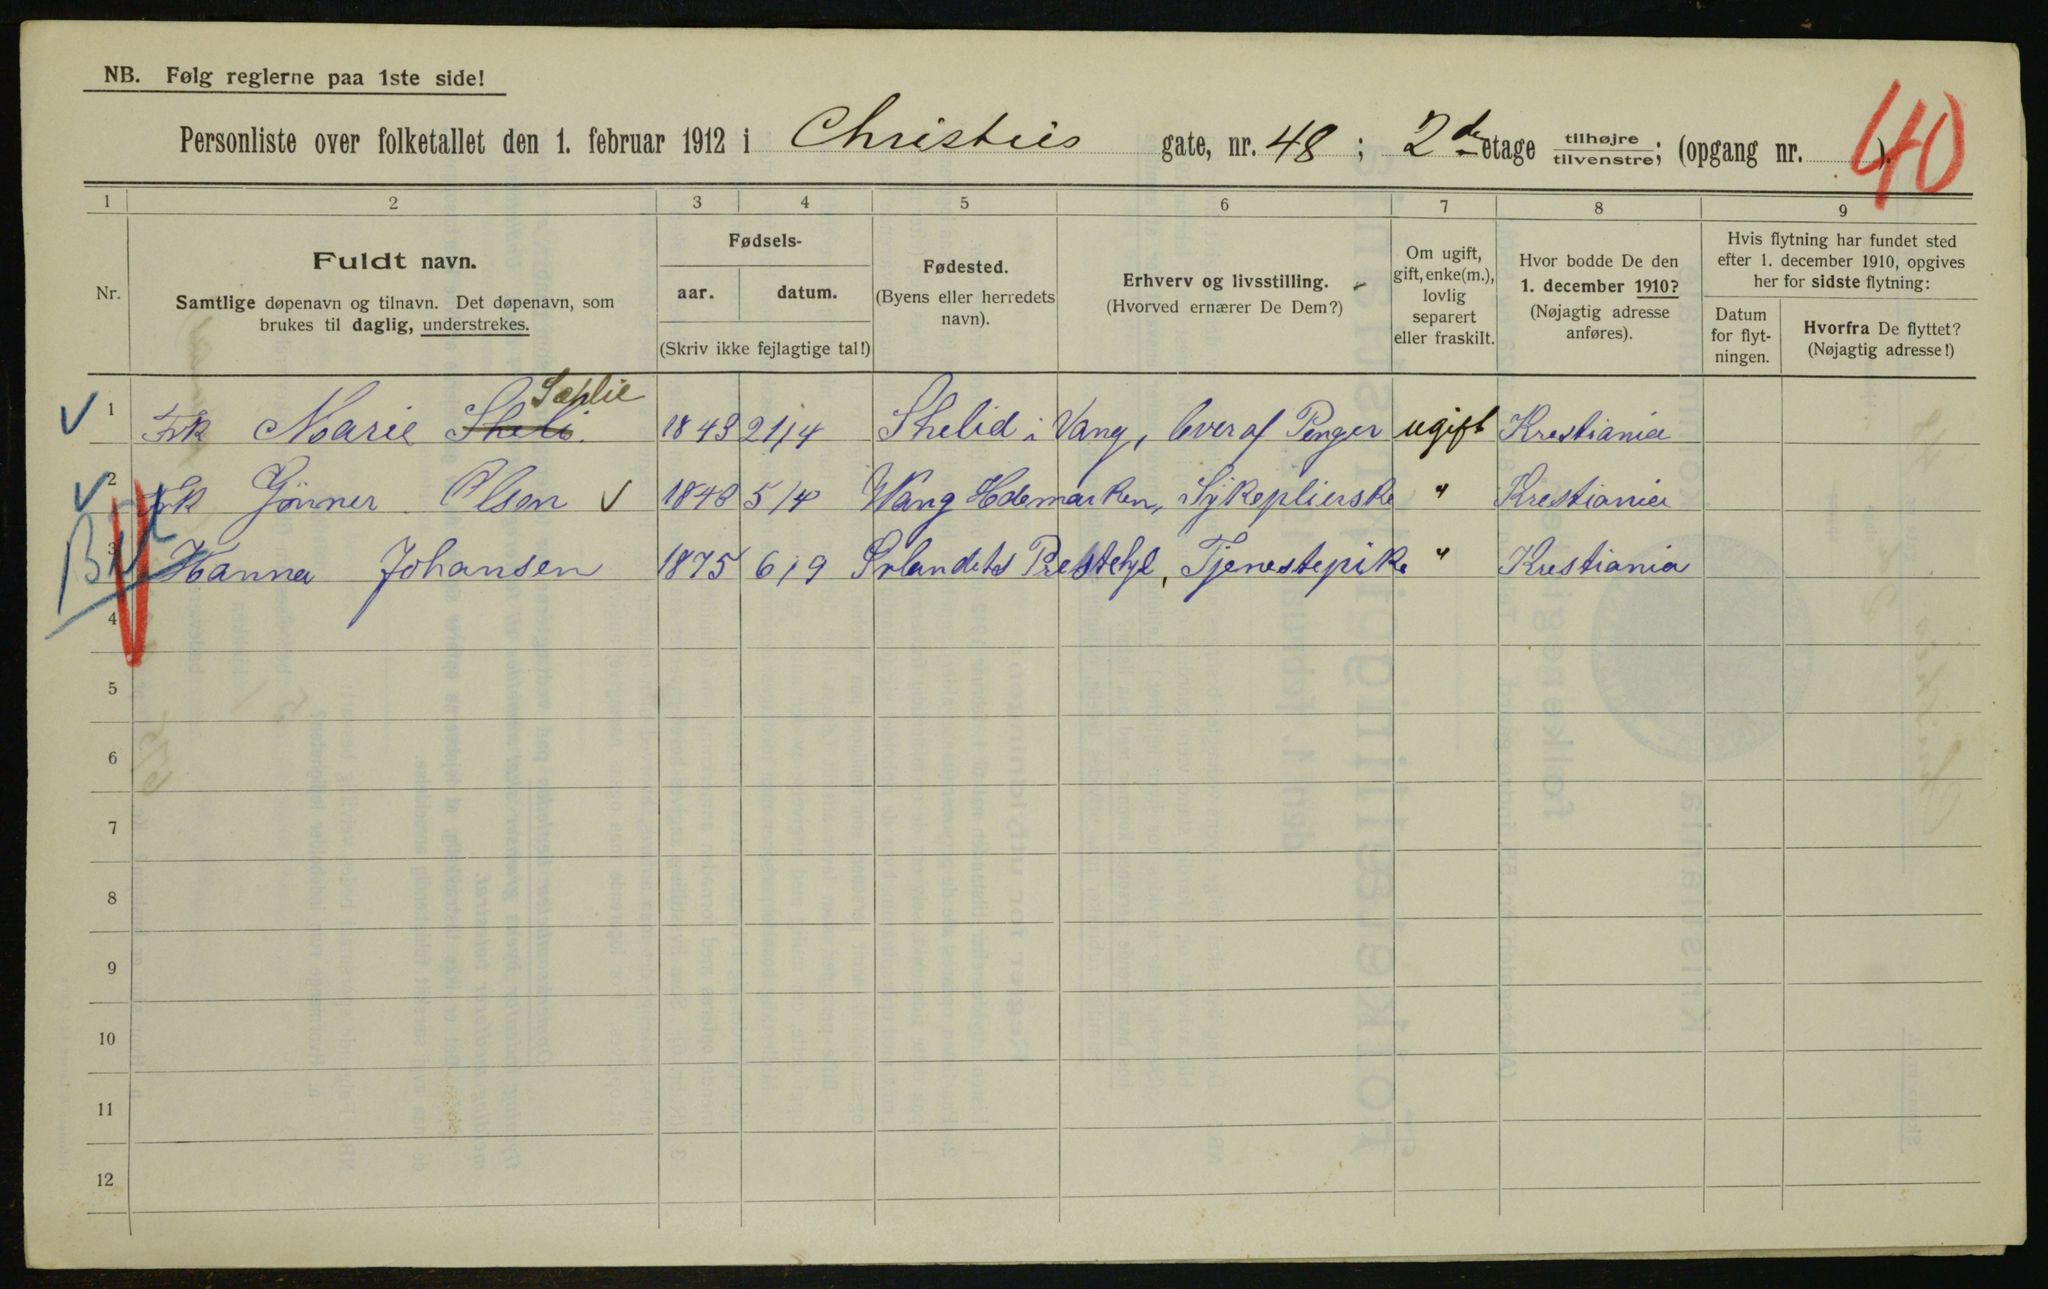 NB. Følg reglerne paa 1ste side!
Personliste over folketallet den 1. februar 1912 i Christies gate, nr. 48; 2den etage tilhøjre/tilvenstre; (opgang nr. ).
40
1 2 3 4 5 6 7 8 9
Nr.
Fuldt navn.
Samtlige døpenavn og tilnavn. Det døpenavn, som
brukes til daglig, understrekes.
Fødsels-
aar. datum.
(Skriv ikke fejlagtige tal!)
Fødested.
(Byens eller herredets
navn).
Erhverv og livsstilling.
(Hvorved ernærer De Dem?)
Om ugift,
gift, enke(m.),
lovlig
separert
eller fraskilt.
Hvor bodde De den
1. december 1910?
(Nøjagtig adresse
anføres).
Hvis flytning har fundet sted
efter 1. december 1910, opgives
her for sidste flytning:
Datum
for flyt-
ningen.
Hvorfra De flyttet?
(Nøjagtig adresse!)
Sæhlie
1 Frk Marie Sheli. 1843 21/4 Shelid i Vang, lever af Penger ugift Krestiania
2 Frk Gønner Olsen 1843 5/4 Wang Hedemarken, Sykeplierske " Krestiania
3 Hanna Johansen 1875 6/9 Solandets Prestehjl, Tjenestepike " Krestiania
4
5
6
7
8
9
10
11
12